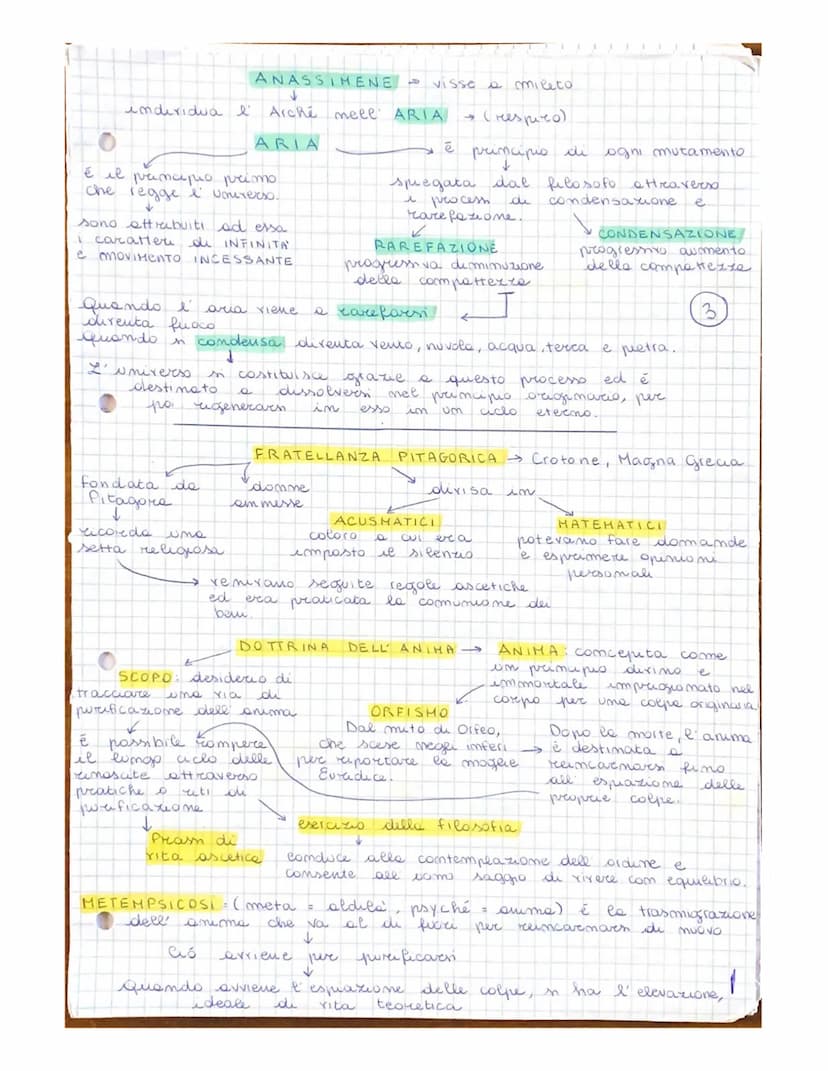 ANASSIMENE → visse a mileto
individua l' Arché nell' ARIA → (respiro)
ARIA
è principio di ogni mutamento
è il principio primo
che regge l' universo.
sono attribuiti ad essa
i caratteri di INFINITA'
e MOVIMENTO INCESSANTE
spiegata dal filosofo attraverso
i processi di condensazione e
rarefazione.
RAREFAZIONE
progressiva diminuzione
della compattezza
CONDENSAZIONE
progressivo aumento
della compattezza
3
Quando l' aria viene a rarefarsi
diventa fuoco
Quando si condensa diventa vento, nuvola, acqua, terra e pietra.
L' universo si costituisce grazie a questo processo ed è
destinato a dissolversi nel principio originario, per
poi rigenerarsi in esso in un ciclo eterno.
FRATELLANZA PITAGORICA → Crotone, Magna Grecia
fondata da
Pitagora
donne
ammesse
divisa in
ricorda una
setta religiosa
ACUSMATICI
coloro a cui era
imposto il silenzio
MATEMATICI
potevano fare domande
e esprimere opinioni
personali
venivano seguite regole ascetiche
ed era praticata la comunione dei
beni.
DOTTRINA DELL' ANIMA → ANIMA: concepita come
un principio divino e
immortale imprigionato nel
corpo per una colpa originaria
SCOPO: desiderio di
tracciare una via di
purificazione dell' anima
è possibile rompere
il lungo ciclo delle
rinascite attraverso
pratiche o riti di
purificazione
ORFISMO
Dal mito di Orfeo,
che scese negli inferi
per riportare la moglie
Euridice.
Dopo la morte, l' anima
è destinata a
reincarnarsi fino
all' espiazione delle
proprie colpe.
esercizio della filosofia
Prassi di
vita ascetica
conduce alla contemplazione dell' ordine e
consente all' uomo saggio di vivere con equilibrio.
METEMPSICOSI = (meta = aldilà, psyché = anima) è la trasmigrazione
dell' anima che va al di fuori per reincarnarsi di nuovo
Ciò avviene per purificarsi
Quando avviene l' espiazione delle colpe, si ha l' elevazione,
ideale di vita teoretica